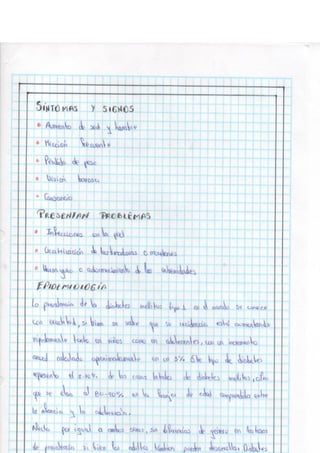 SINTOMAS Y SIGNOS
Aumento de sed y hambre
Micción frecuente
Pérdida de peso
Visión borrosa
Cansancio
PRESENTAN PROBLEMAS
Infecciones en la piel
Cicatrización de las heridas o moretones
Hormigueo o adormecimiento de las extremidades
EPIDEMIOLOGÍA
La prevalencia de la diabetes mellitus tipo 1 en el mundo se conoce
con exactitud, si bien se sabe que su incidencia está aumentando
rápidamente tanto en niños como en adolescentes, con un incremento
anual calculado aproximadamente en un 3% Este tipo de diabetes
representa el 5-10% de los casos totales de diabetes mellitus, cifra
que se eleva al 80-90% en la franja de edad comprendida entre
la infancia y la adolescencia.
Afecta por igual a ambos sexos, sin diferencias de género en la tasa
de prevalencia si bien los adultos también pueden desarrollar Diabetes